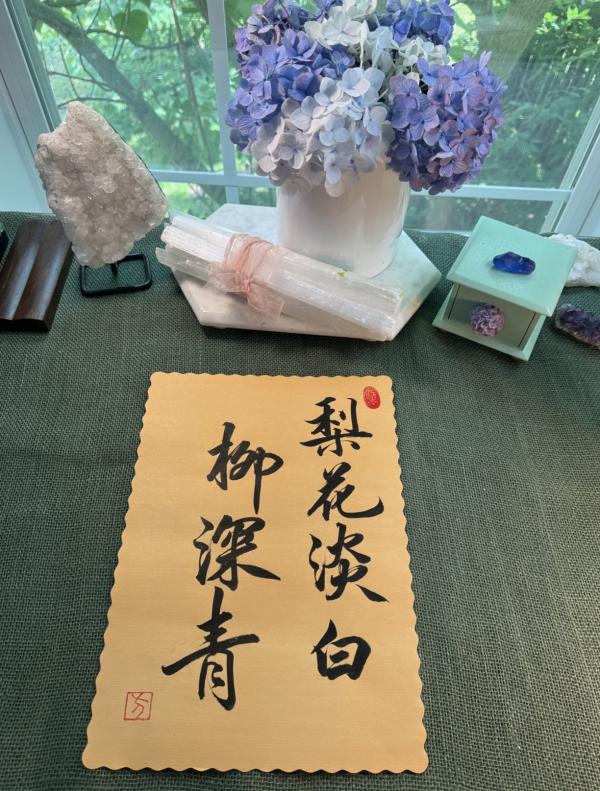 梨花淡白
柳深青